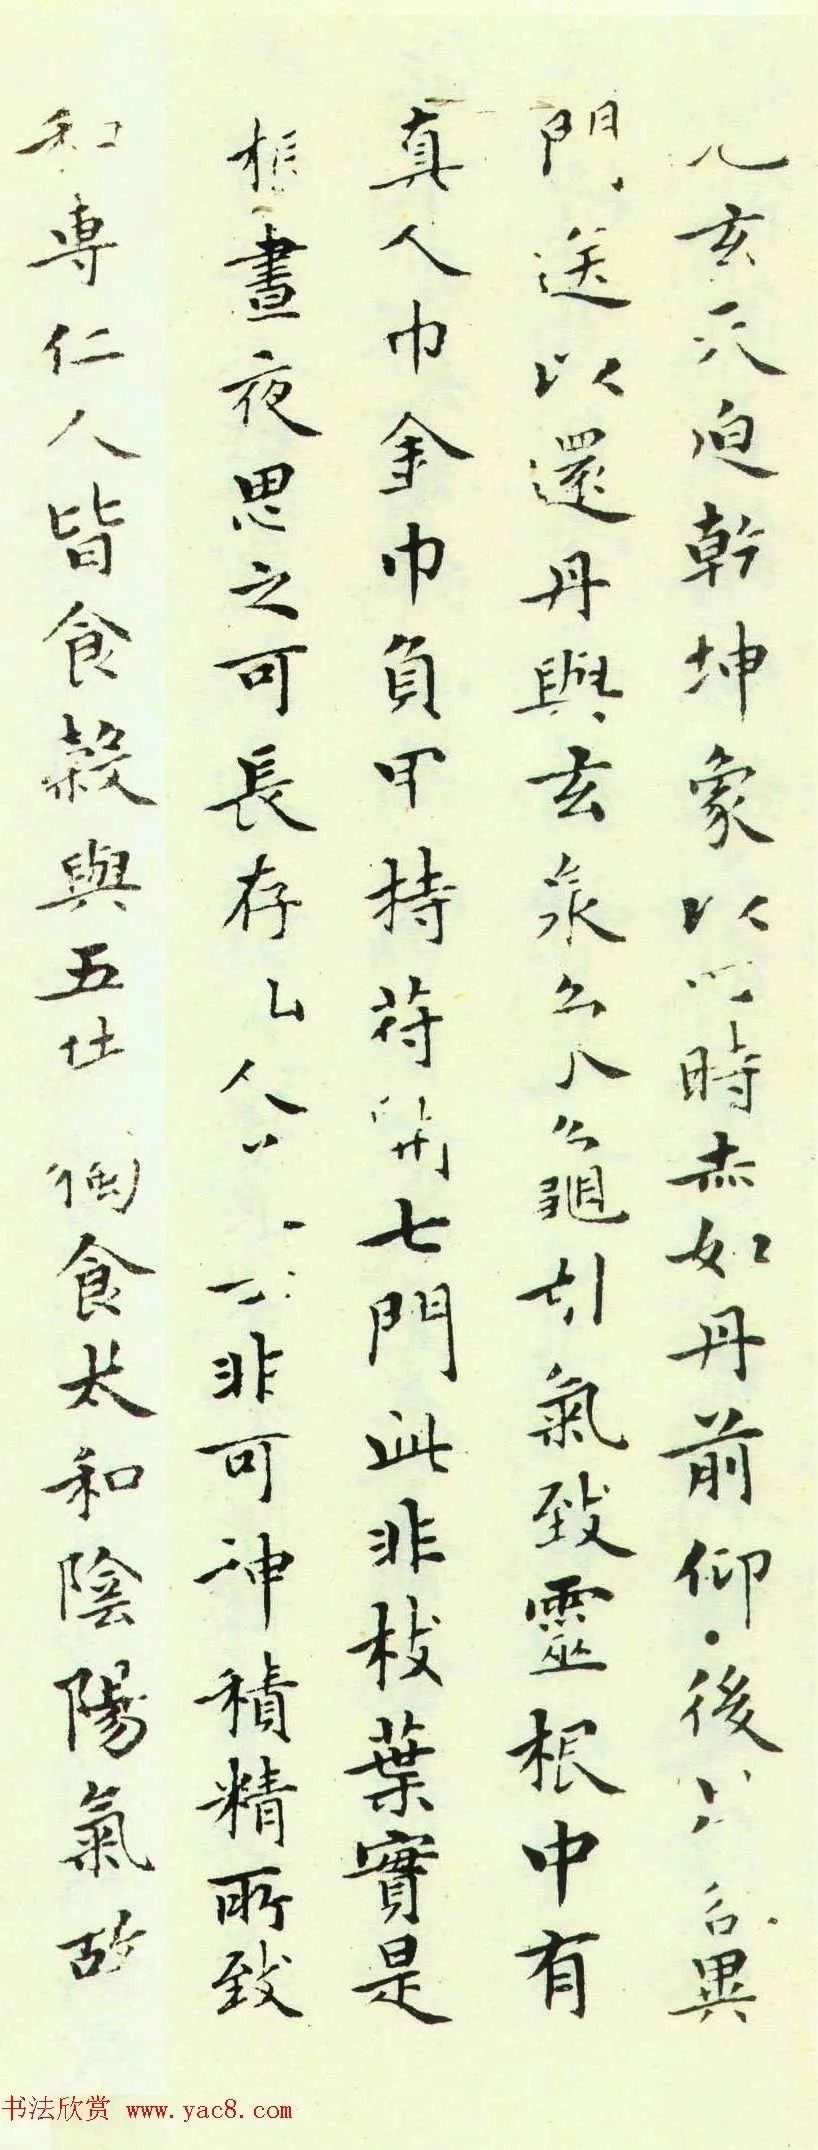 玄天迫乾坤象以時赤如丹前仰後異
門送以還丹與玄泉龜引氣致靈根中有
真人巾金巾負甲持符開七門此非枝葉實是
根晝夜思之可長存人非可神積精所致
和專仁人皆食穀與五獨食太和陰陽氣故
书法欣赏 www.yac8.com